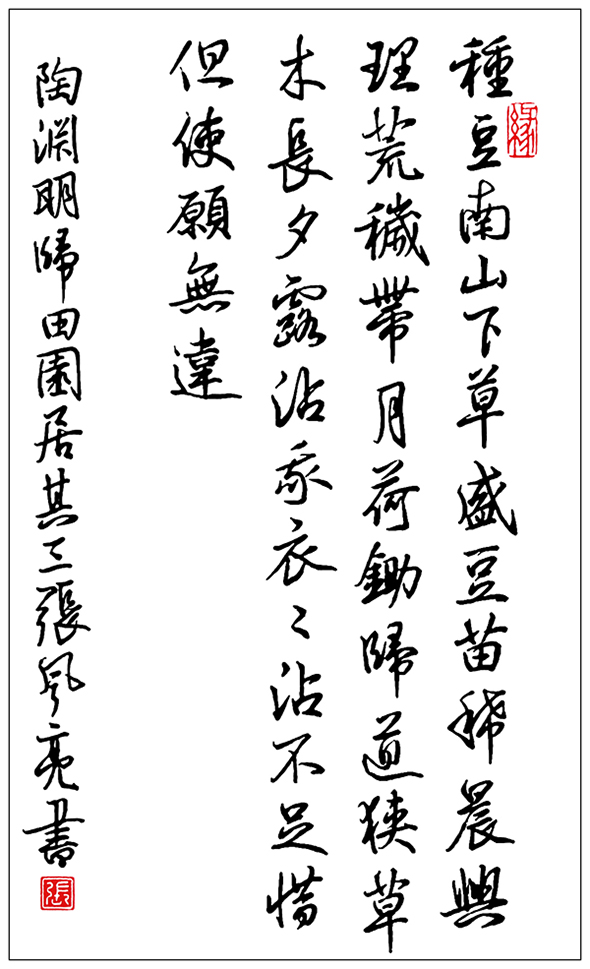 種豆南山下草盛豆苗稀晨興
緣
理荒穢帶月荷鋤歸道狹草
木長夕露沾我衣〻沾不足惜
但使願無違
陶淵明歸田園居其三張風亮書
張